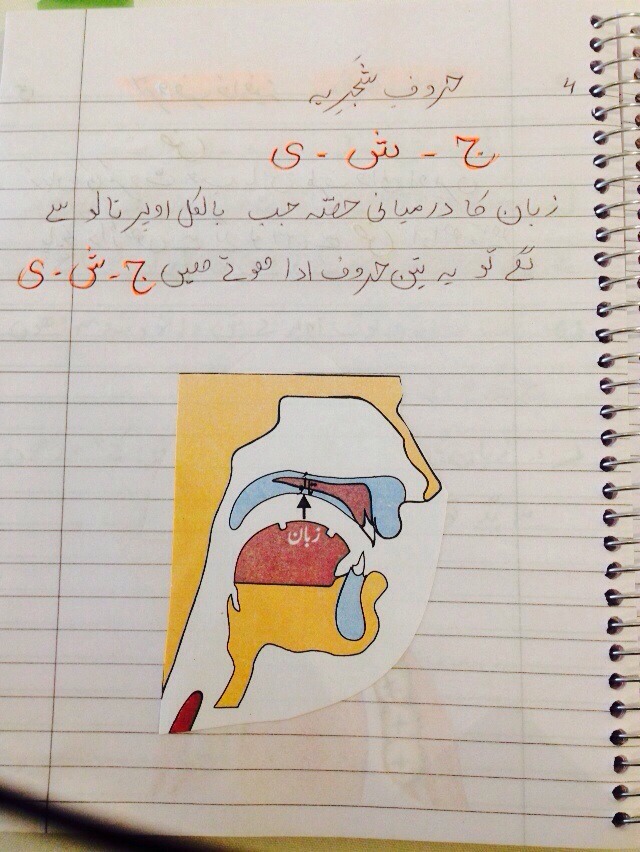 ۴ حروفِ شَجَرِیہ
ج - ش - ی
زبان کا درمیانی حصّہ جب بالکل اوپر تالو سے
لگے تو یہ تین حروف ادا ھوتے ھیں ج - ش - ی
زبان